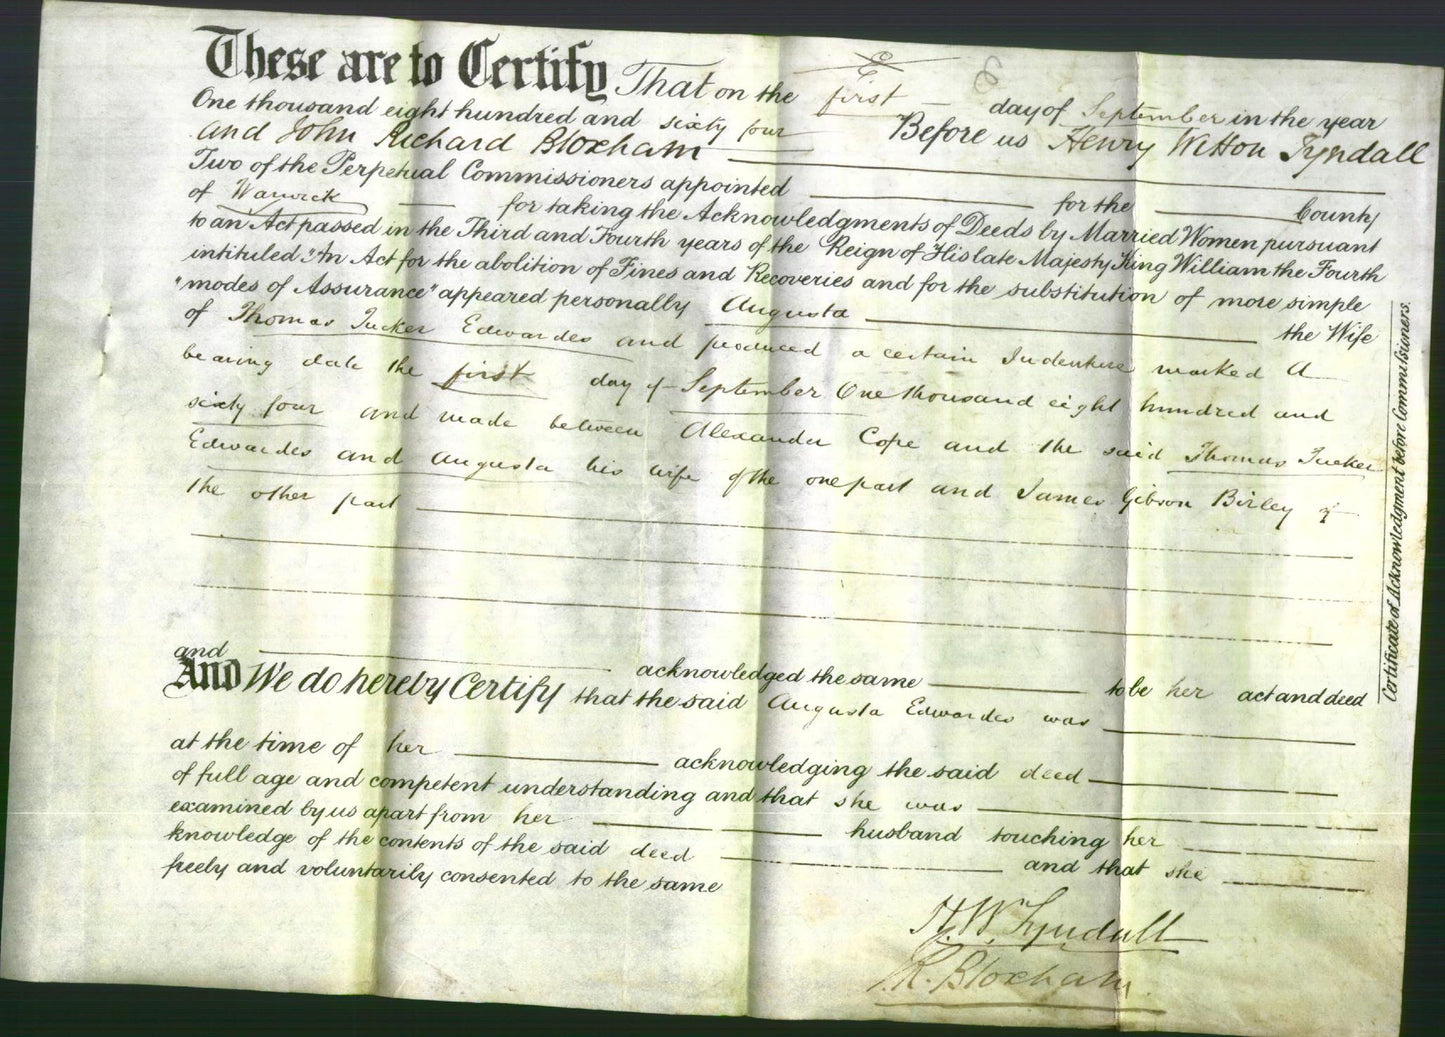 These are to Certify That on the first day of September in the year
One thousand eight hundred and sixty four Before us Henry Wetton Tyndall
and John Richard Bloxham
Two of the Perpetual Commissioners appointed for the County
of Warwick for taking the Acknowledgments of Deeds by Married Women pursuant
to an Act passed in the Third and Fourth years of the Reign of His late Majesty King William the Fourth
intituled "An Act for the abolition of Fines and Recoveries and for the substitution of more simple
"modes of Assurance" appeared personally Augusta the Wife
of Thomas Tucker Edwardes and produced a certain Indenture marked A
bearing date the first day of September One thousand eight hundred and
sixty four and made between Alexander Cope and the said Thomas Tucker
Edwardes and Augusta his wife of the one part and James Gibson Birley of
the other part
and acknowledged the same to be her act and deed
And We do hereby Certify that the said Augusta Edwardes was
at the time of her acknowledging the said deed
of full age and competent understanding and that she was
examined by us apart from her husband touching her
knowledge of the contents of the said deed and that she
freely and voluntarily consented to the same
H. W. Tyndall
J. R. Bloxham
Certificate of Acknowledgment before Commissioners.